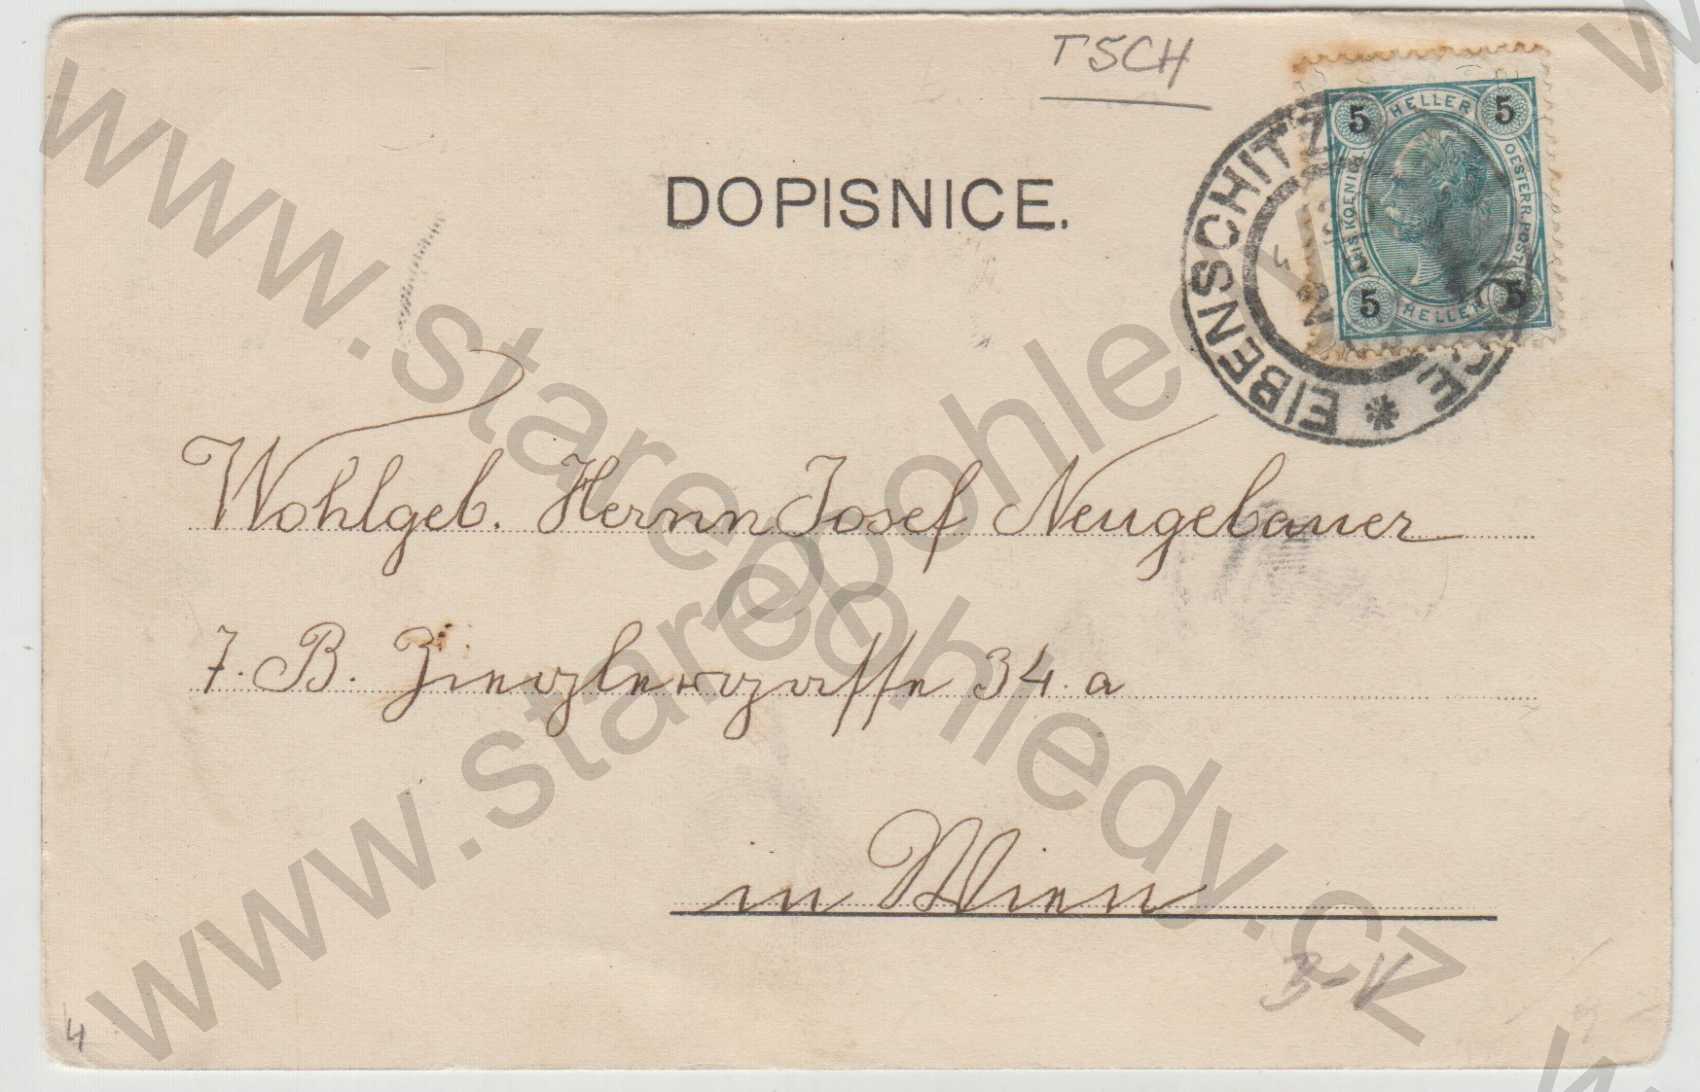 TSCH
5 HELLER 5
KAIS KOENIGL
OESTERR. POST
5 HELLER 5
EIBENSCHITZ
CE
DOPISNICE.
Wohlgeb. Herrn Josef Neugebauer
7. B. Zieglergasse 34. a
in Wien
B-V
4
www.starepohledy.cz
www.starepohledy.cz